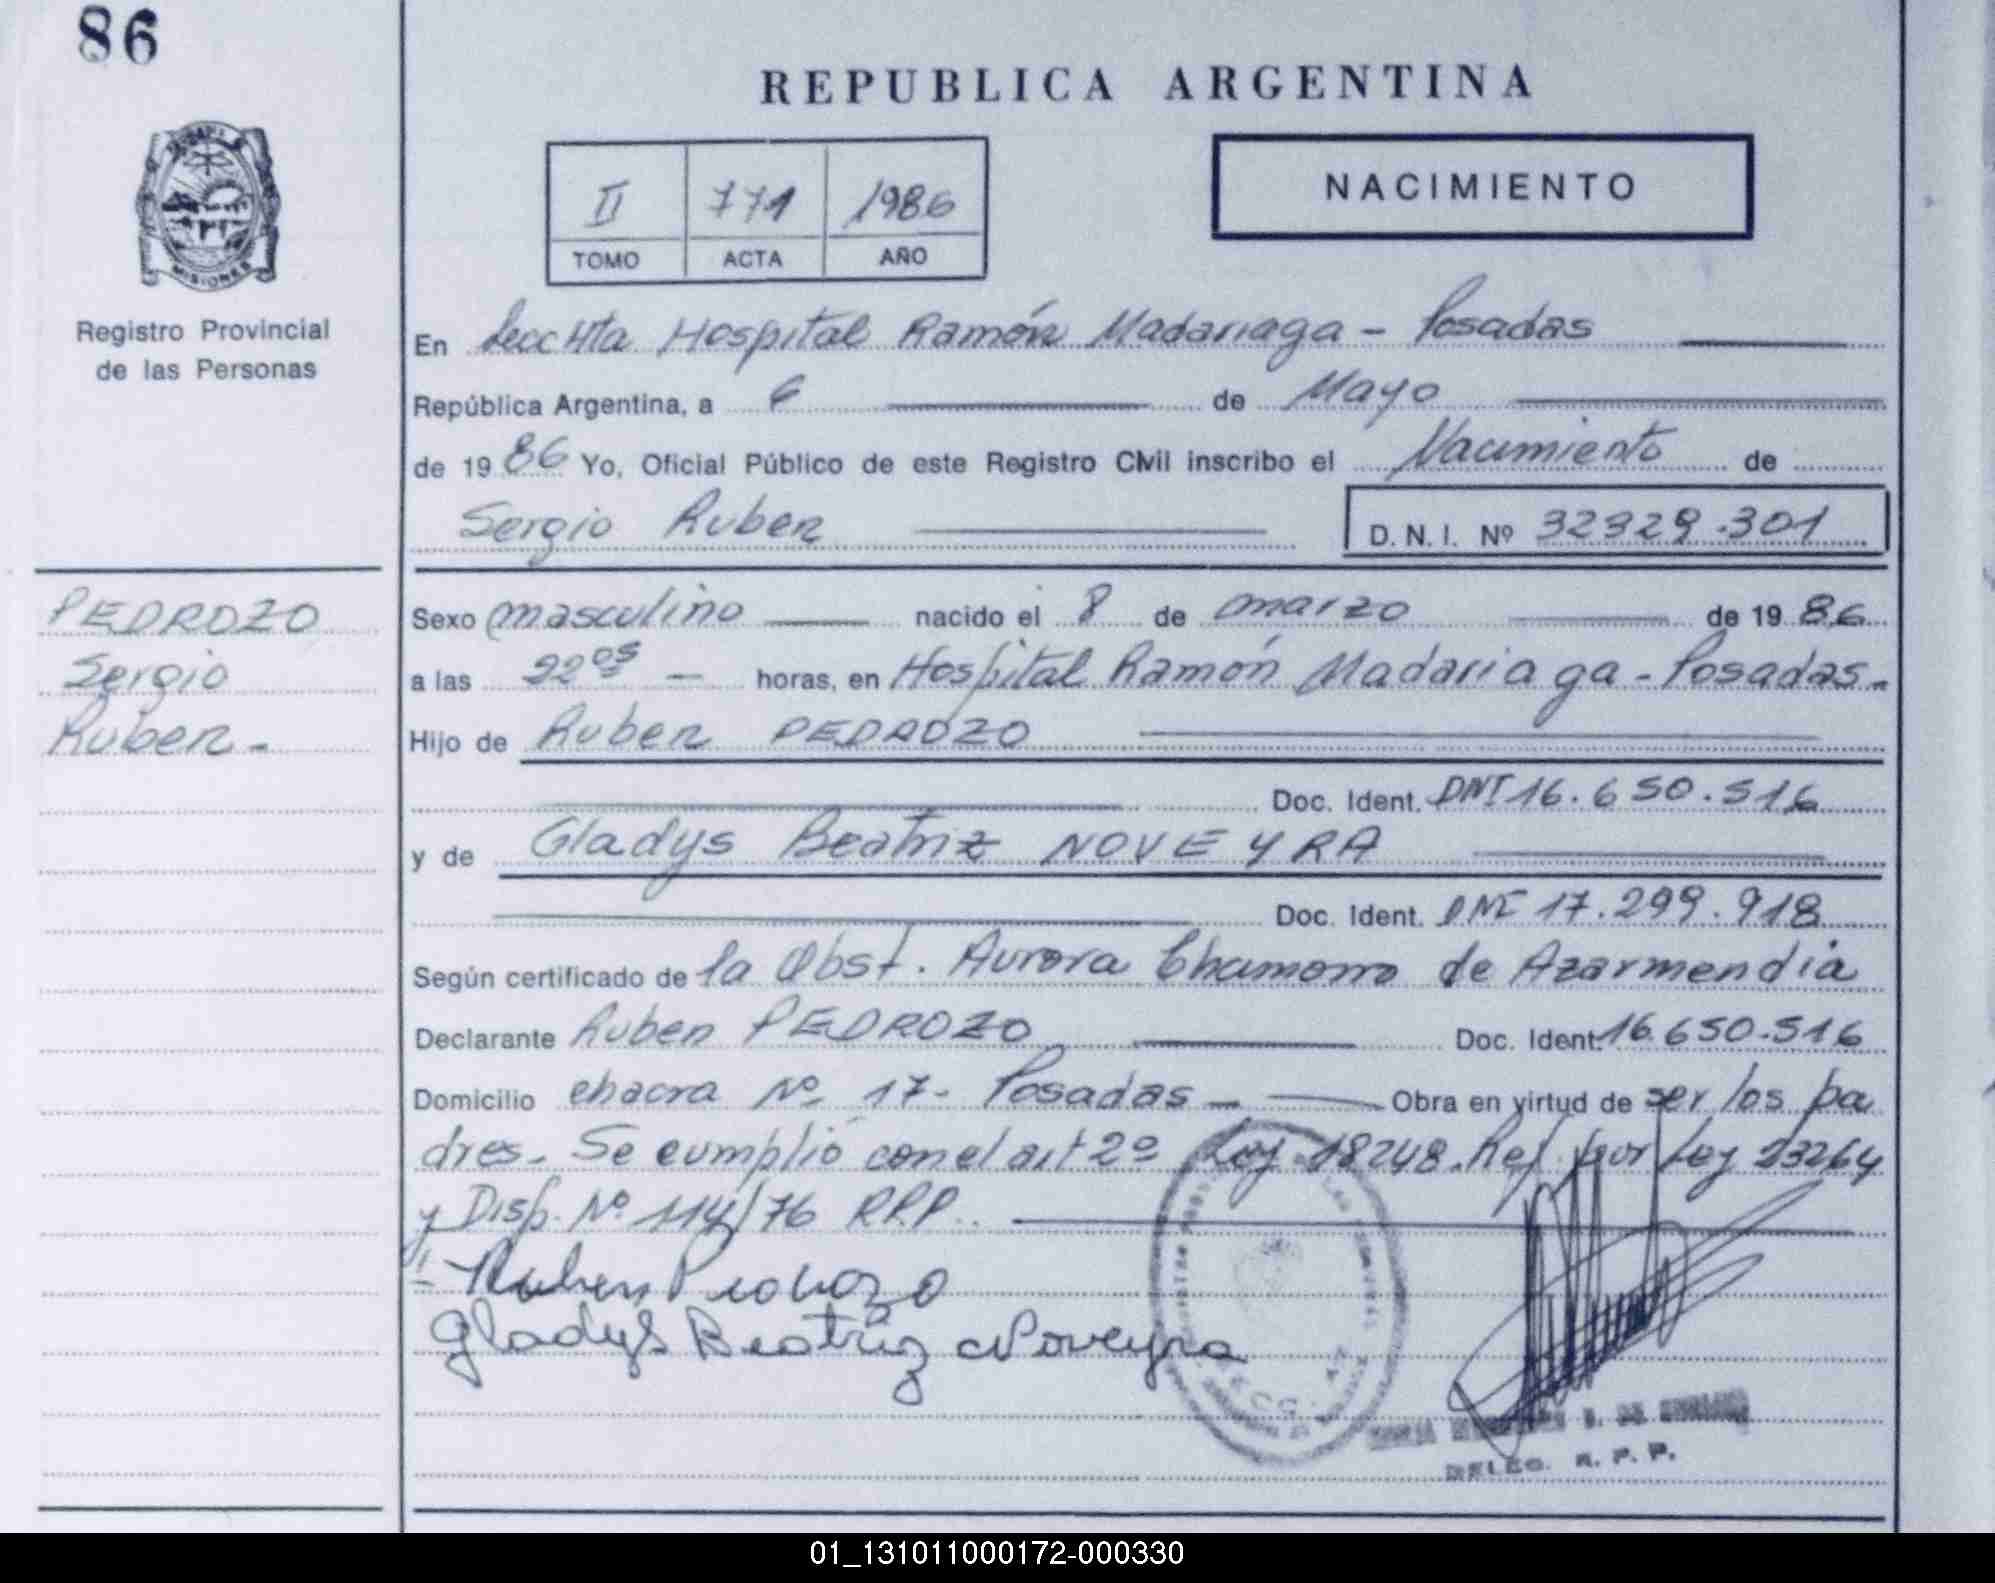 86
REPUBLICA ARGENTINA
II 771 1986
TOMO ACTA AÑO
NACIMIENTO
MISIONES
Registro Provincial
de las Personas
En Secc 4ta Hospital Ramón Madariaga - Posadas
República Argentina, a 6 de Mayo
de 1986 Yo, Oficial Público de este Registro Civil inscribo el Nacimiento de
Sergio Ruben D.N.I. Nº 32329.301
PEDROZO
Sergio
Ruben -
Sexo masculino nacido el 8 de marzo de 1986
a las 22 05 - horas, en Hospital Ramón Madariaga - Posadas -
Hijo de Ruben PEDROZO
Doc. Ident. DNI 16.650.516
y de Gladys Beatriz NOVEYRA
Doc. Ident. DNI 17.299.918
Según certificado de la Obst. Aurora Chamorro de Azarmendia
Declarante Ruben PEDROZO Doc. Ident. 16.650.516
Domicilio chacra Nº 17 - Posadas - Obra en virtud de ser los pa
dres - Se cumplió con el art 2º Ley 18248. Ref. por Ley 23264
y Disp. Nº 114/76 RPP.
Ruben Pedrozo
Gladys Beatriz Noveyra
DELEG. R. P. P.
01_131011000172-000330